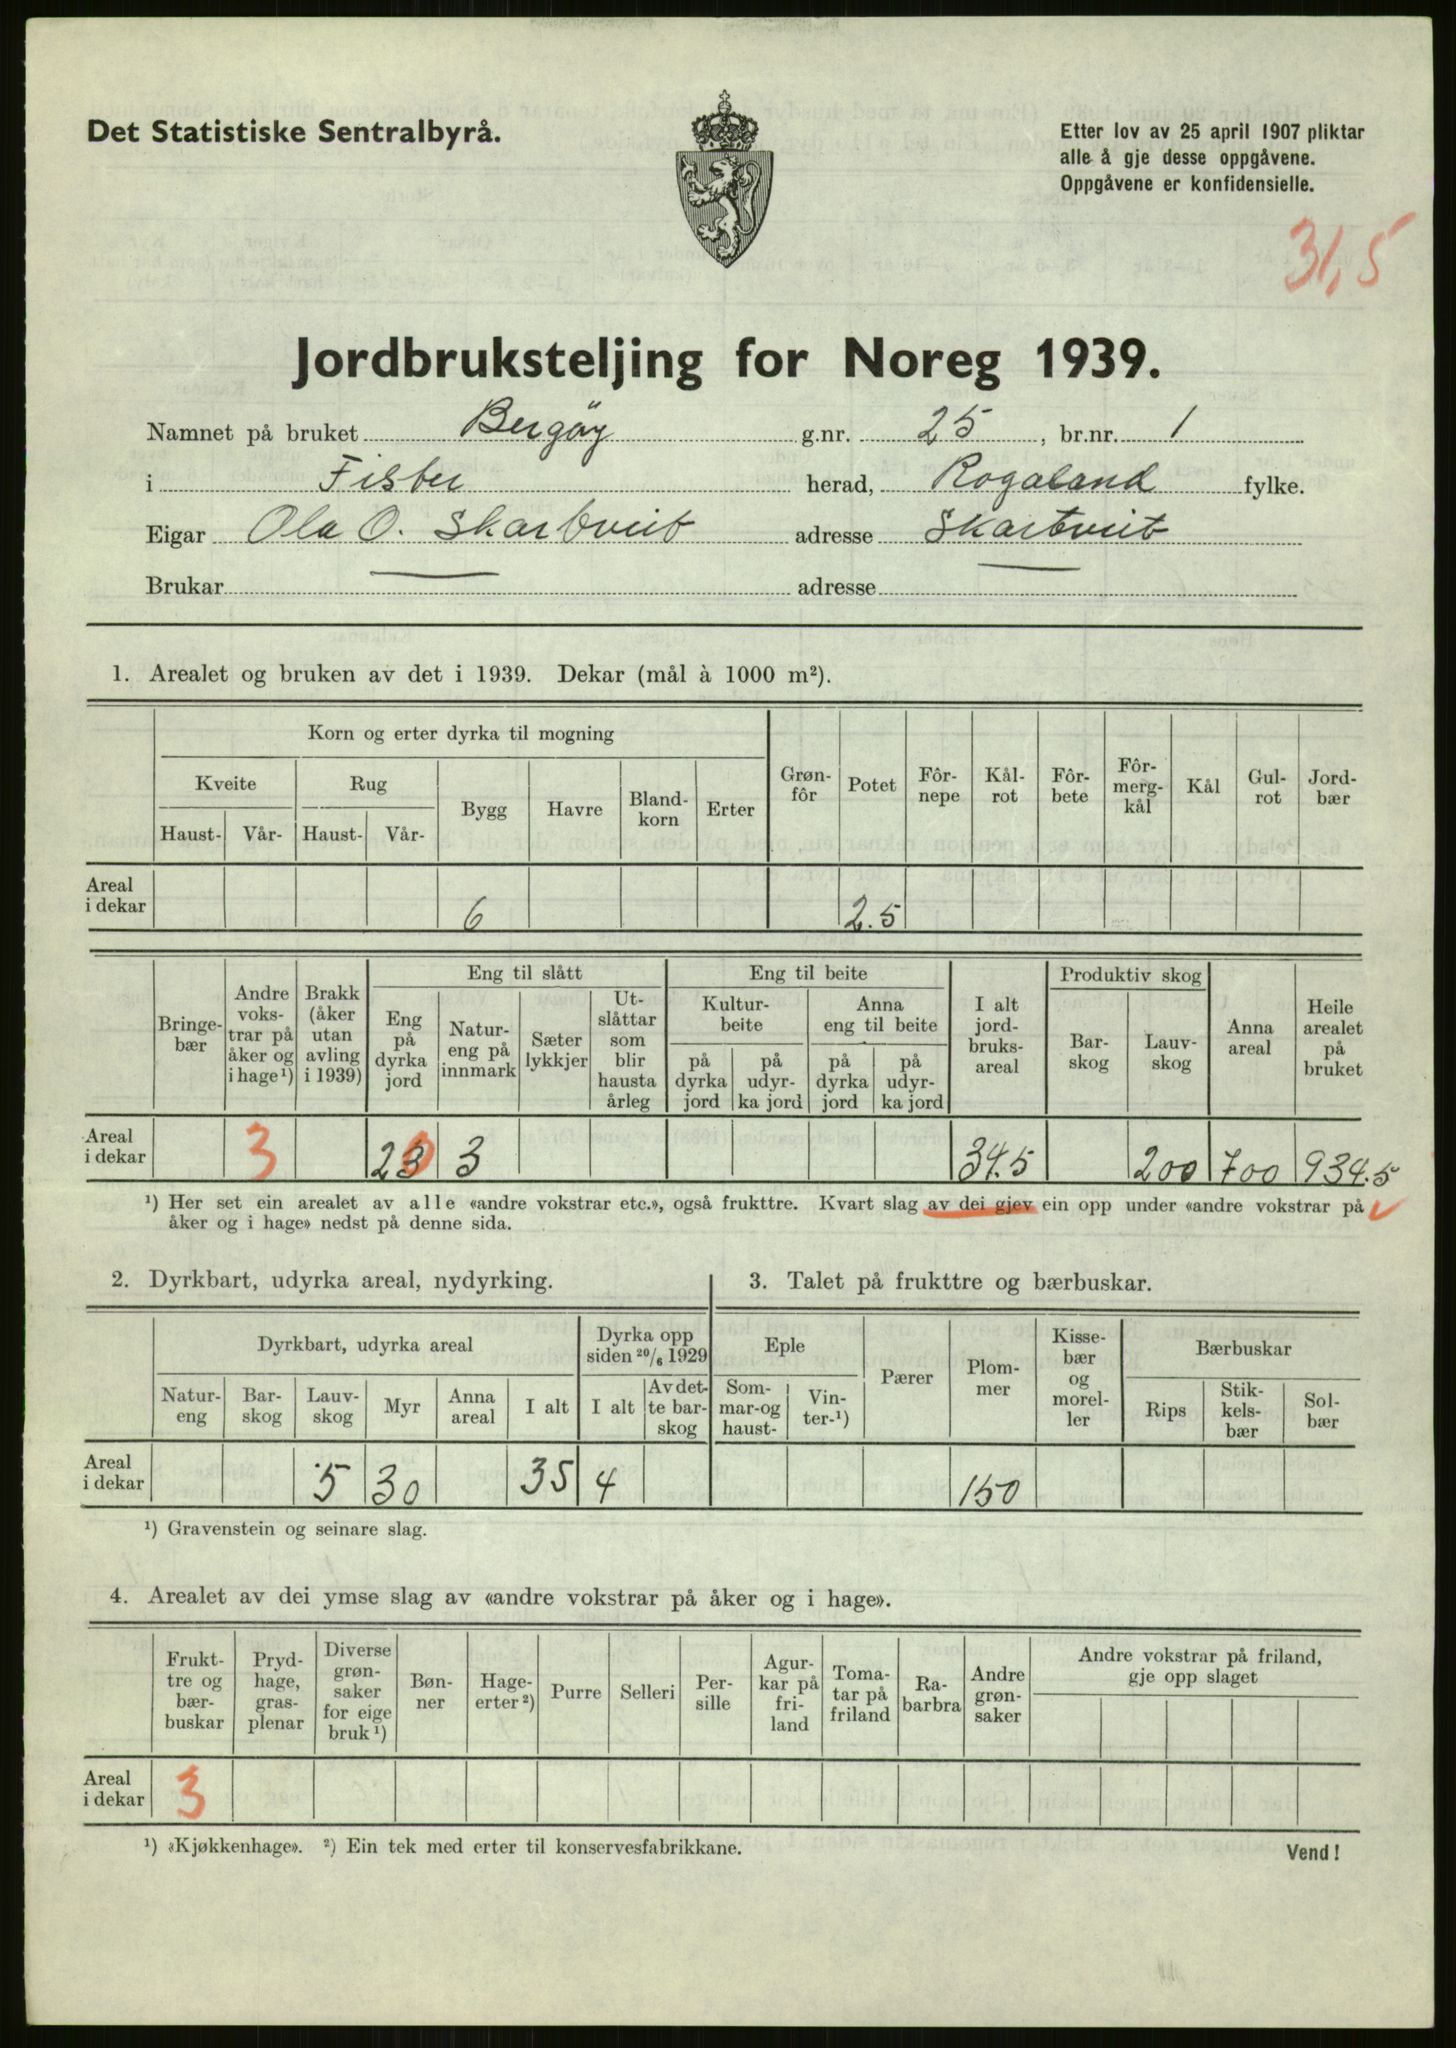 Det Statistiske Sentralbyrå.
Etter lov av 25 april 1907 pliktar
alle å gje desse oppgåvene.
Oppgåvene er konfidensielle.
31,5
Jordbruksteljing for Noreg 1939.
Namnet på bruket Bergöy g.nr. 25, br.nr. 1
i Fister herad, Rogaland fylke.
Eigar Ola O. Skartveit adresse Skartveit
Brukar — adresse —
1. Arealet og bruken av det i 1939. Dekar (mål à 1000 m²).
Korn og erter dyrka til mogning
Kveite Rug
Haust- Vår- Haust- Vår- Bygg Havre Bland-korn Erter Grøn-fôr Potet Fôr-nepe Kål-rot Fôr-bete Fôr-merg-kål Kål Gul-rot Jord-bær
Areal i dekar 6 2.5
Eng til slått Eng til beite Produktiv skog
Kultur-beite Anna eng til beite
Bringe-bær Andre voks-trar på åker og i hage¹) Brakk (åker utan avling i 1939) Eng på dyrka jord Natur-eng på innmark Sæter lykkjer Ut-slåttar som blir hausta årleg på dyrka jord på udyr-ka jord på dyrka jord på udyr-ka jord I alt jord-bruks-areal Bar-skog Lauv-skog Anna areal Heile arealet på bruket
Areal i dekar 3 23 0 3 34.5 200 700 934.5
¹) Her set ein arealet av alle «andre vokstrar etc.», også frukttre. Kvart slag av dei gjev ein opp under «andre vokstrar på
åker og i hage» nedst på denne sida.
2. Dyrkbart, udyrka areal, nydyrking.
Dyrkbart, udyrka areal Dyrka opp siden 20/6 1929
Natur-eng Bar-skog Lauv-skog Myr Anna areal I alt I alt Av det-te bar-skog
Areal i dekar 5 30 35 4
¹) Gravenstein og seinare slag.
3. Talet på frukttre og bærbuskar.
Eple Pærer Plom-mer Kisse-bær og morel-ler Bærbuskar
Som-mar-og haust- Vin-ter-¹) Rips Stik-kels-bær Sol-bær
150
4. Arealet av dei ymse slag av «andre vokstrar på åker og i hage».
Frukt-tre og bær-buskar Pryd-hage, gras-plenar Diverse grøn-saker for eige bruk¹) Bøn-ner Hage-erter²) Purre Selleri Per-sille Agur-kar på fri-land Toma-tar på friland Ra-barbra Andre grøn-saker Andre vokstrar på friland, gje opp slaget
Areal i dekar 3
¹) «Kjøkkenhage». ²) Ein tek med erter til konservesfabrikkane.
Vend!